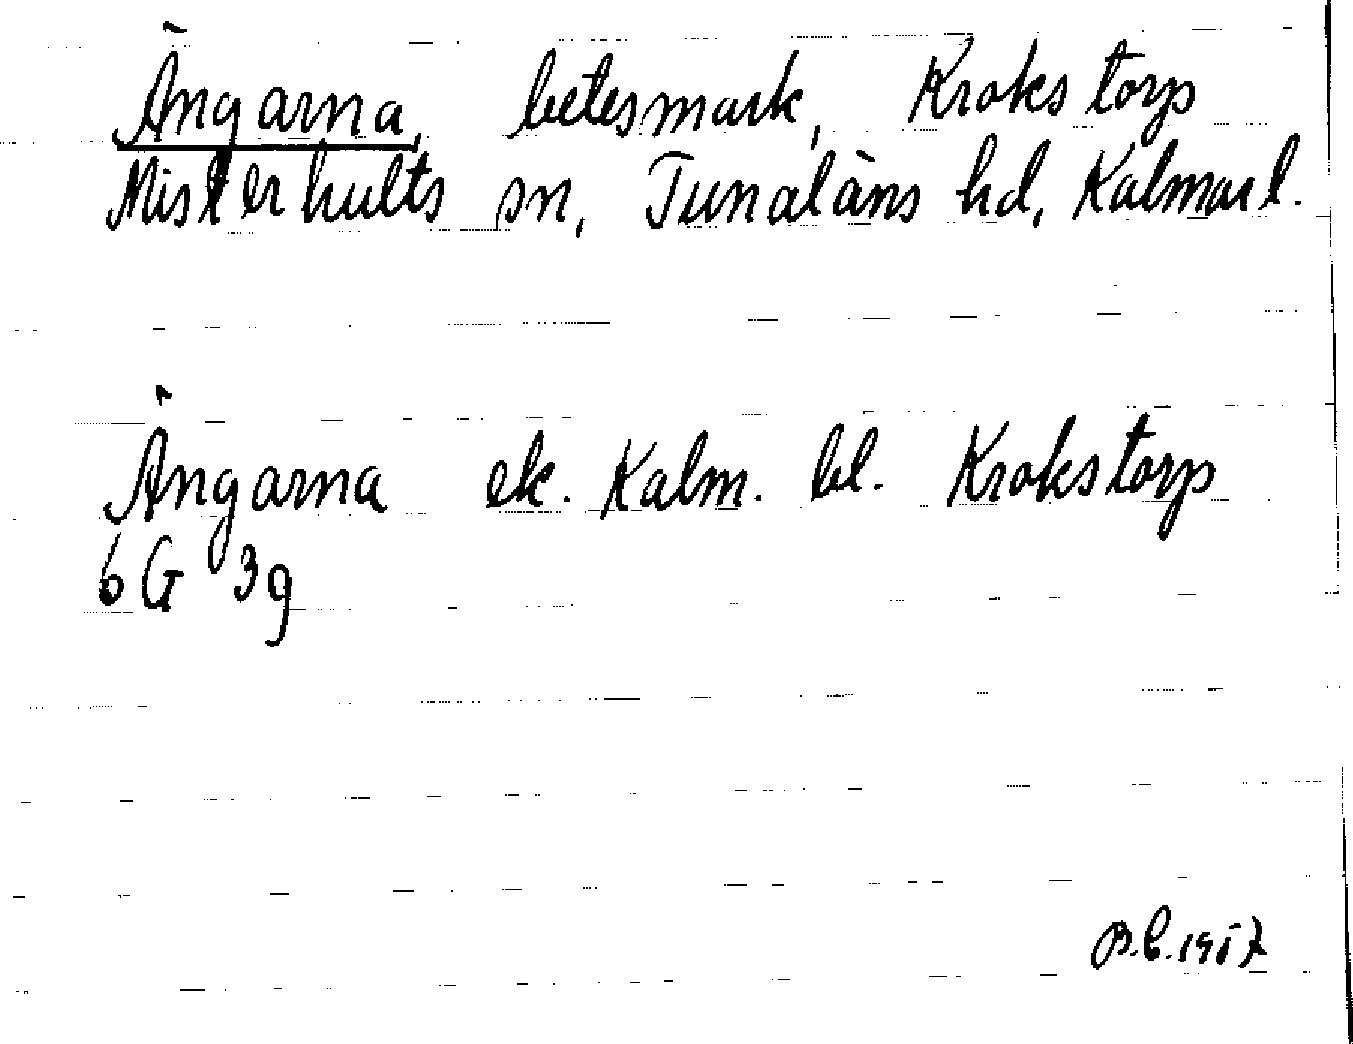 Ängarna, betesmark, Krokstorp
Misterhults sn, Tunaläns hd, Kalmar l.
Ängarna ek. Kalm. bl. Krokstorp
6 G 3g
B.C. 1957